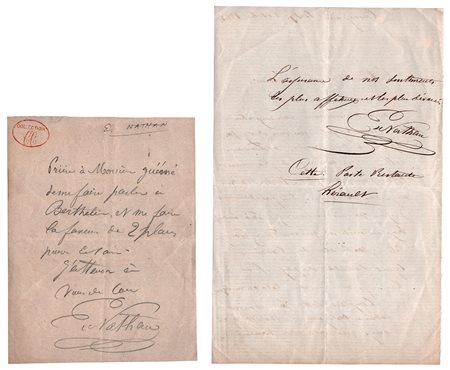 COLLECTION
E. NATHAN
Prière à Monsieur
de me faire parler à
Berthelier, et me faire
la faveur de 2 places
pour ce soir
J'attends à
Ec Nathan
L'assurance de nos sentiments
les plus affectueux et les plus dévoués
Ec Nathan
Cette Poste Restante
Hérault